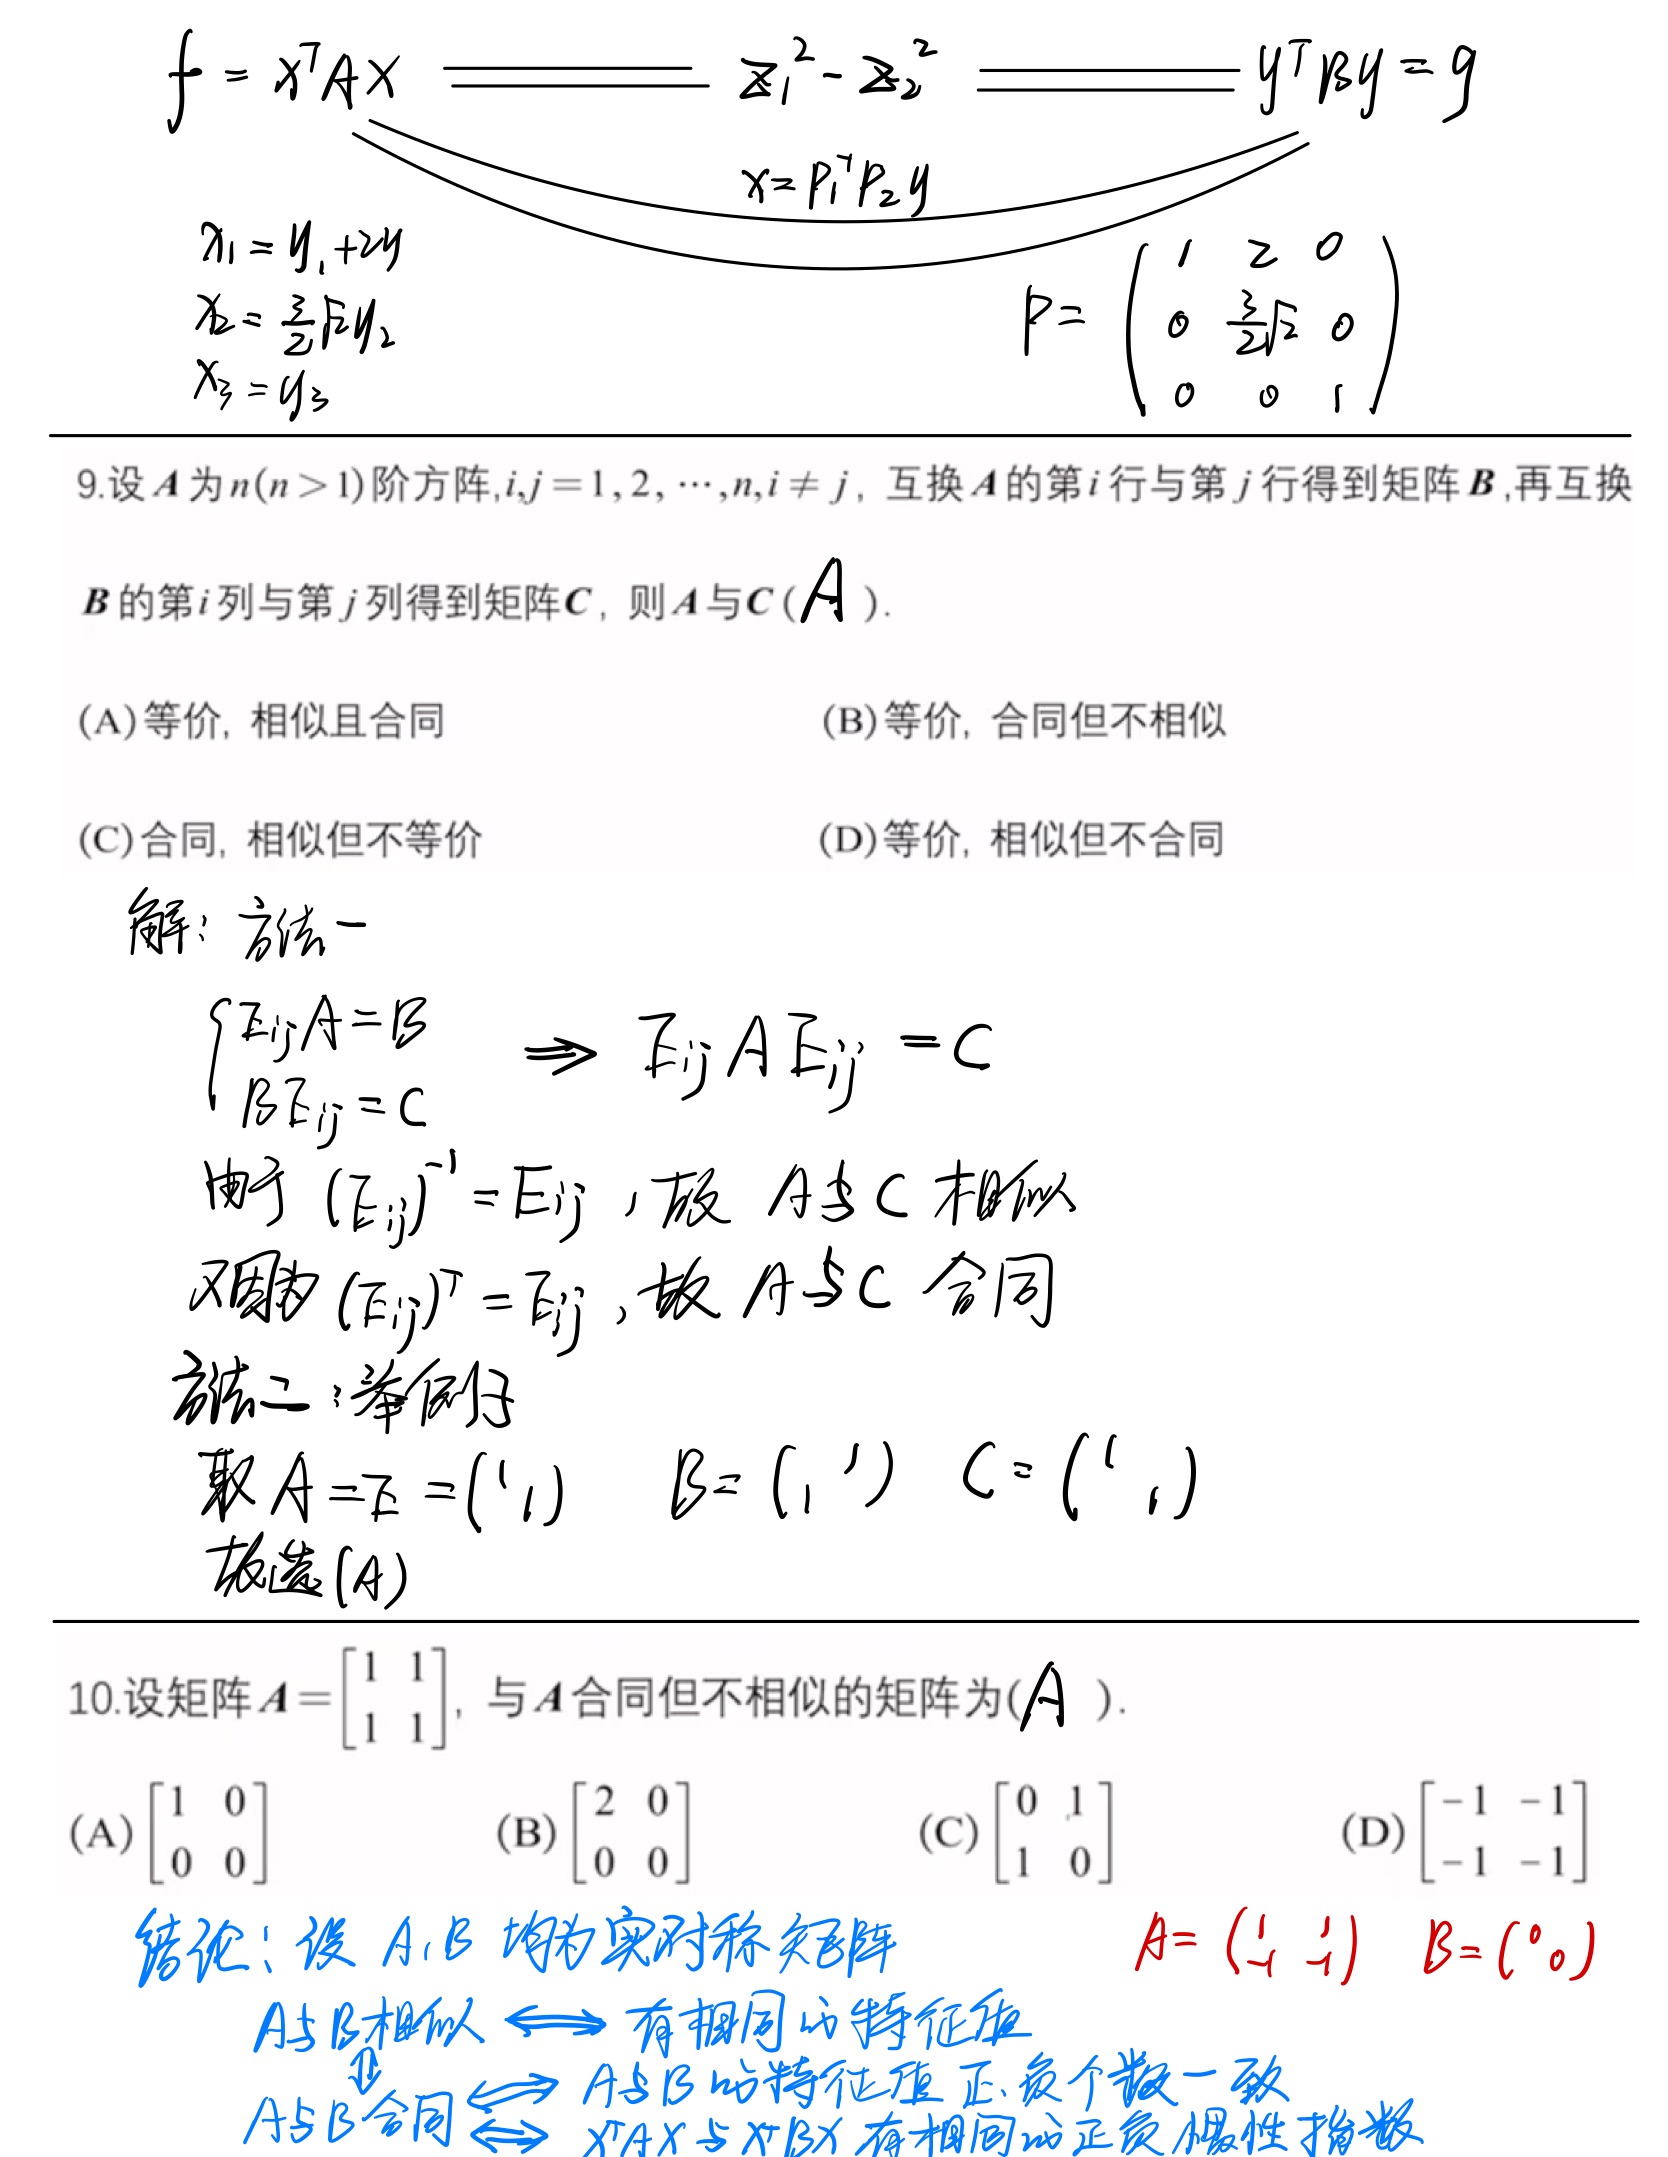 f = xᵀAx ═══ z₁² - z₂² ═══ yᵀBy = g
x = P₁⁻¹P₂y
x₁ = y₁ + 2y
x₂ = 3/2 √2 y₂
x₃ = y₃
P = ( 1 2 0
0 3/2√2 0
0 0 1 )
9.设A为n(n > 1)阶方阵,i,j = 1, 2, ⋯,n,i ≠ j, 互换A的第i行与第j行得到矩阵B,再互换
B的第i列与第j列得到矩阵C, 则A与C(A).
(A)等价, 相似且合同 (B)等价, 合同但不相似
(C)合同, 相似但不等价 (D)等价, 相似但不合同
解: 方法一
{ EijA = B
BEij = C ⇒ EijAEij = C
由于 (Eij)⁻¹ = Eij, 故 A与C 相似
又因为 (Eij)ᵀ = Eij, 故 A与C 合同
方法二: 举例子
取 A = E = (1 1) B = (1 1) C = (1 1)
故选(A)
10.设矩阵A = [1 1
1 1], 与A合同但不相似的矩阵为(A).
(A) [1 0
0 0] (B) [2 0
0 0] (C) [0 1
1 0] (D) [-1 -1
-1 -1]
结论: 设 A,B 均为实对称矩阵
A = (1 1
-1 -1) B = (0 0)
A与B相似 ⟺ 有相同的特征值
⇓
A与B合同 ⟺ A与B的特征值正、负个数一致
⟺ xᵀAx 与 xᵀBx 有相同的正负惯性指数